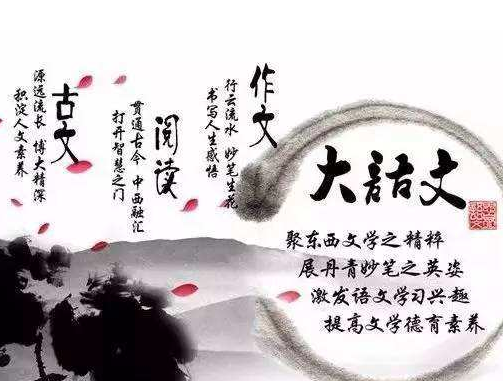 大語文
聚东西文学之精粹
展丹青妙笔之英姿
激发语文学习兴趣
提高文学德育素养
作文
行云流水 妙笔生花
书写人生感悟
阅读
贯通古今 中西融汇
打开智慧之门
古文
源远流长 博大精深
积淀人文素养